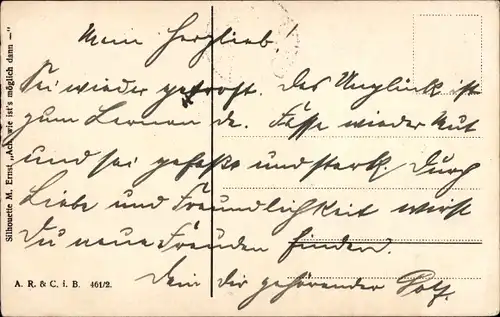 Mein Herzlieb!
Sei wieder getrost. Das Unglück ist
zum Lernen da. Fasse wieder Mut
und sei gefaßt und stark. Durch
Liebe und Freundlichkeit wirst
Du neue Freuden finden.
Dein Dir gehörender
Silhouette M. Ernst „Ach, wie ist's möglich dann —"
A. R. & C. i. B. 461/2.